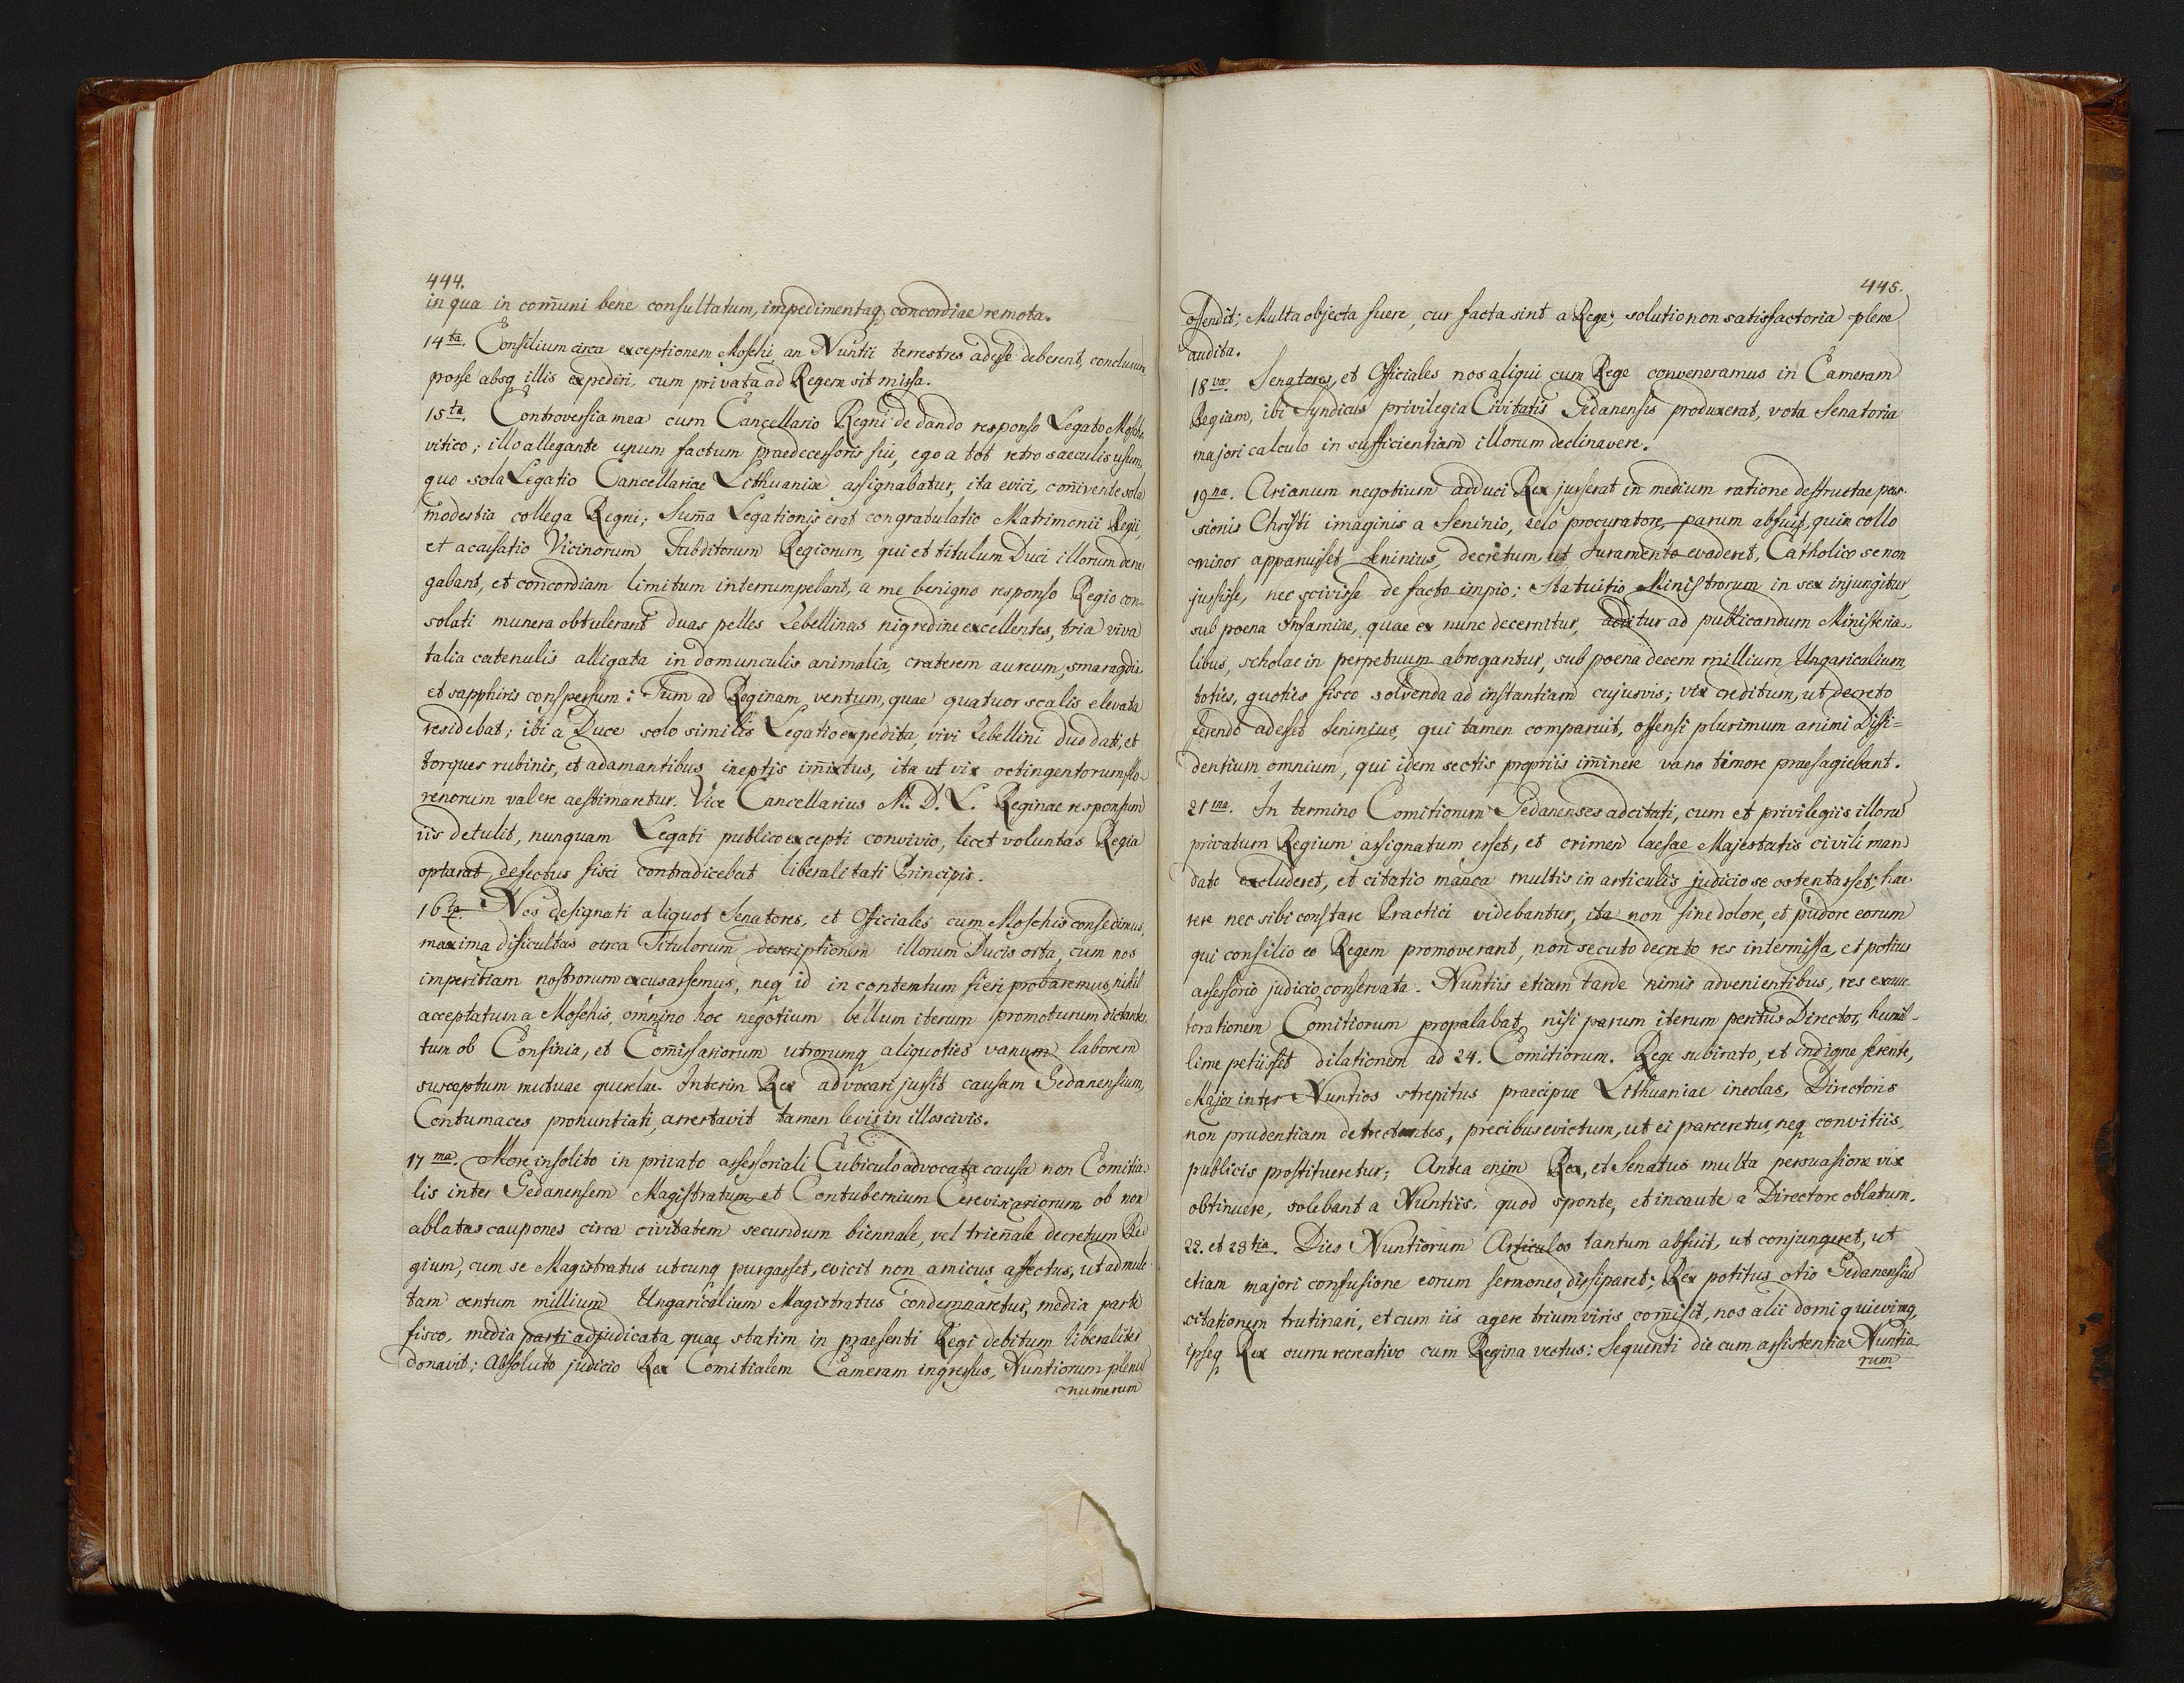 444.
in qua in com̄uni bene consultatum, impedimentaq concordiae remota.
14ta. Consilium circa exceptionem Moschi, an Nuntii terrestres adesse deberent, conclusum
posse absq illis expediri, cum privata ad Regem sit missa.
15ta. Controversia mea cum Cancellario Regni de dando responso Legato Moscho-
vitico; illo allegante unum factum praedecessoris sui, ego a tot retro saeculis usum,
quo sola Legatio Cancellariae Lithuaniae assignabatur, ita evici, con̄ivente sola
modestia collega Regni; Sum̄a Legationis erat congratulatio Matrimonii Regii,
et acausatio Vicinorum Subditorum Regiorum, qui et titulum Duci illorum dene
gabant, et concordiam limitum interrumpebant, a me benigno responso Regio con-
solati munera obtulerant duas pelles Zebellinas nigredine excellentes, tria viva
talia catenulis alligata in domunculis animalia, craterem aureum, smaragdis
et sapphiris conspersum: Tum ad Reginam ventum, quae quatuor scalis elevata
residebat; ibi a Duce solo similis Legatio expedita, vivi Zebellini duo dati, et
torques rubinis, et adamantibus ineptis im̄ixtus, ita ut vix octingentorum flo-
renorum valere aestimaretur. Vice Cancellarius M. D. L. Reginae responsum
iis detulit, nunquam Legati publico excepti convivio, licet voluntas Regia
optarat, defectus fisci contradicebat liberalitati Principis.
16ta. Nos designati aliquot Senatores, et Officiales cum Moschis consedimus,
maxima dificultas circa Titulorum descriptionem illorum Ducis orta, cum nos
imperitiam nostrorum excusassemus, neq id in contemtum fieri probaremus, nihil
acceptatum a Moschis, omnino hoc negotium bellum iterum promoturum dictants,
tum ob Confinia, et Com̄issariorum utrorumq aliquoties vanum laborem
susceptum mutuae querelae. Interim Rex advocari jussit causam Gedanensium,
Contumaces pronuntiati, arrestavit tamen levis in illos civis.
17ma. More insolito in privato assessoriali Cubiculo advocata causa non Comitia-
lis inter Gedanensem Magistratum, et Contubernium Cerevisiariorum, ob non
ablatas caupones circa civitatem secundum biennale, vel trien̄ale decretum Re
gium, cum se Magistratus utcunq purgasset, evicit non amicus affectus, ut ad mulc
tam centum millium Ungaricalium Magistratus condemnaretur, media parte
fisco, media parti adjudicata, quae statim in praesenti Regi debitum liberaliter
donavit; Absoluto judicio Rex Comitialem Cameram ingressus, Nuntiorum plenu
numerum
445.
offendit; Multa objecta fuere, cur facta sint a Rege; solutio non satisfactoria plene
audita.
18va. Senatores, et Officiales nos aliqui cum Rege conveneramus in Cameram
Regiam, ibi Syndicus privilegia Civitatis Gedanensis produxerat, vota Senatoria
majori calculo in sufficientiam illorum declinavere.
19na. Arianum negotium adduci Rex jusserat in medium ratione destructae pas-
sionis Christi imaginis a Seninio, zelo procuratore, parum abfuit, quin collo
minor apparuisset Seninius, decretum, ut Juramento evaderet, Catholico se non
jussisse, nec scivisse de facto impio; Statuitio Ministrorum in sex injungitur,
sub poena Infamiae, quae ex nunc decernitur, additur ad publicandum Ministeria-
libus, scholae in perpetuum abrogantur, sub poena decem millium Ungaricalium
toties, quoties fisco solvenda ad instantiam cujusvis; vix creditum, ut decreto
ferendo adesset Seninius, qui tamen comparuit, offensi plurimum animi Dissi=
dentium omnium, qui idem sectis propriis im̄inere vano timore praesagiebant.
21ma. In termino Comitiorum Gedanenses adcitati, cum et privilegiis illoru
privatum Regium assignatum esset, et crimen laesae Majestatis civili man
dato excluderet, et citatio manca multis in articulis judicio se ostentasset; hae-
rere nec sibi constare Practici videbantur, ita non sine dolore, et pudore eorum
qui consilio eo Regem promoverant, non secuto decreto res intermissa, et potius
assessorio judicio conservata. Nuntiis etiam tarde nimis advenientibus, res exauc
torationem Comitiorum propalabat, nisi parum iterum peritus Director, humil-
lime petiisset dilationem ad 24. Comitiorum. Rege subirato, et indigne ferente,
Major inter Nuntios strepitus praecipue Lithuaniae incolas, Directoris
non prudentiam detrectantes, precibus evictum, ut ei parceretur, neq convitiis
publicis prostitueretur; Antea enim Rex, et Senatus multa persuasione vix
obtinuere, solebant a Nuntiis, quod sponte, et incaute a Directore oblatum.
22. et 23tia. Dies Nuntiorum Articulos tantum abfuit, ut conjungeret, ut
etiam majori confusione eorum sermones dissiparet; Rex potitus otio Gedanensiu
citationem trutinari, et cum iis agere triumviris com̄isit, nos alii domi quievimq,
ipseq Rex curru recreativo cum Regina vectus: Sequenti die cum assistentia Nuntio-
rum